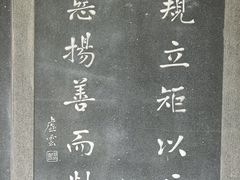 規立矩以
揚善而
虛雲